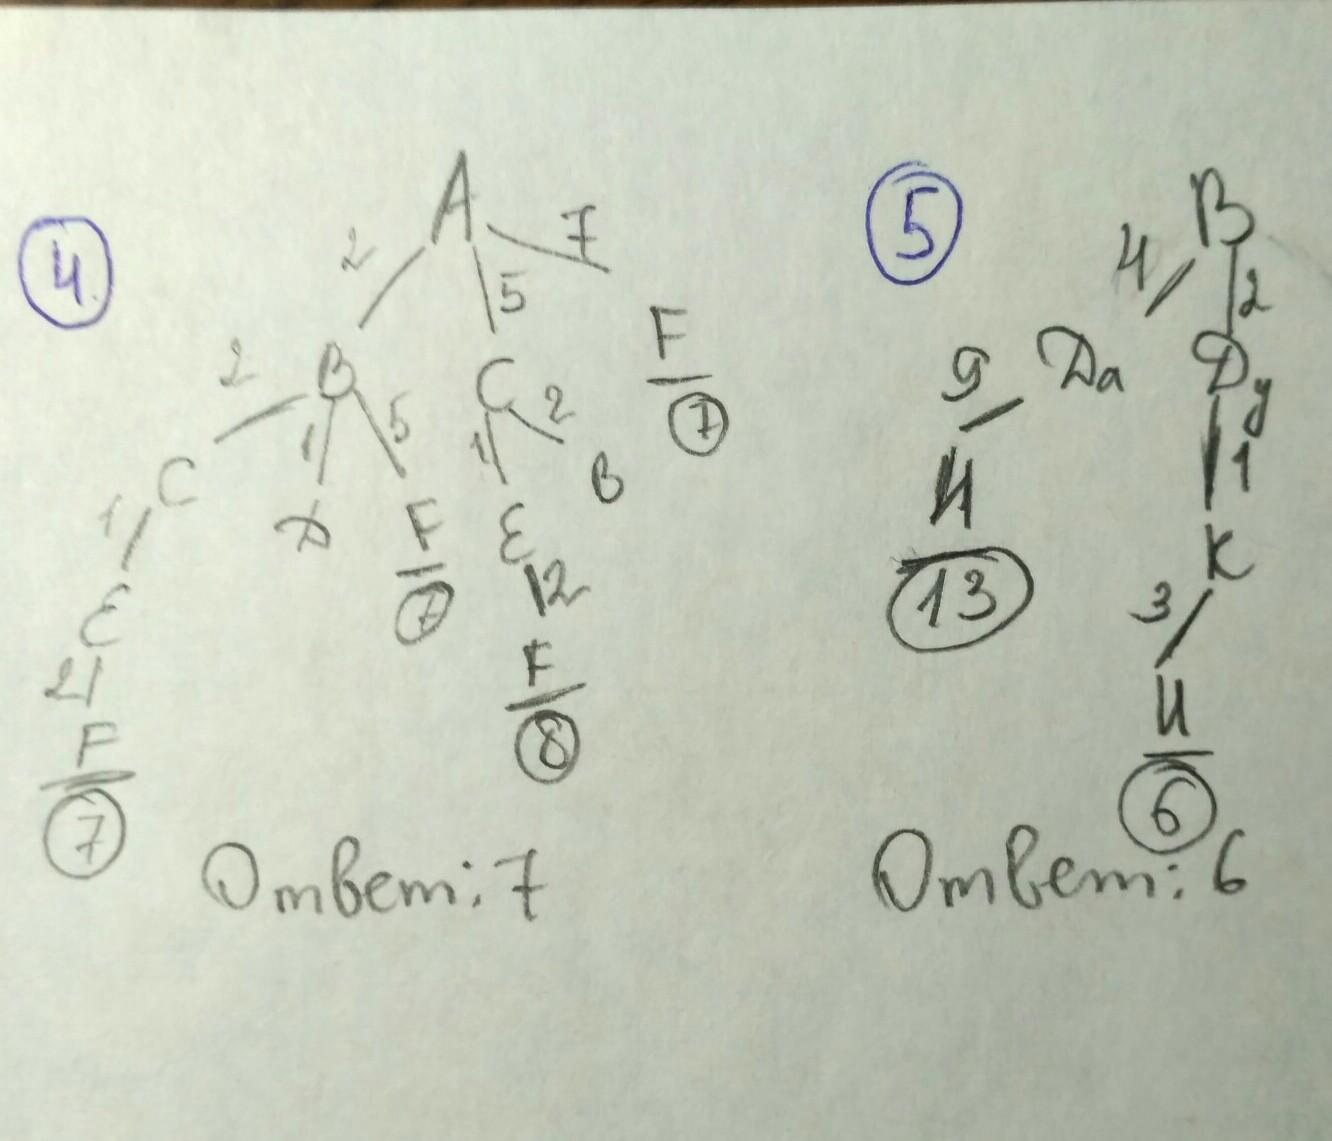 4
A
2
5
7
B
2
1
5
C
2
1
F
7
C
1
D
F
7
E
B
E
2
F
7
2
F
8
Ответ: 7
5
В
4
2
Да
Ду
9
И
13
1
К
3
И
6
Ответ: 6